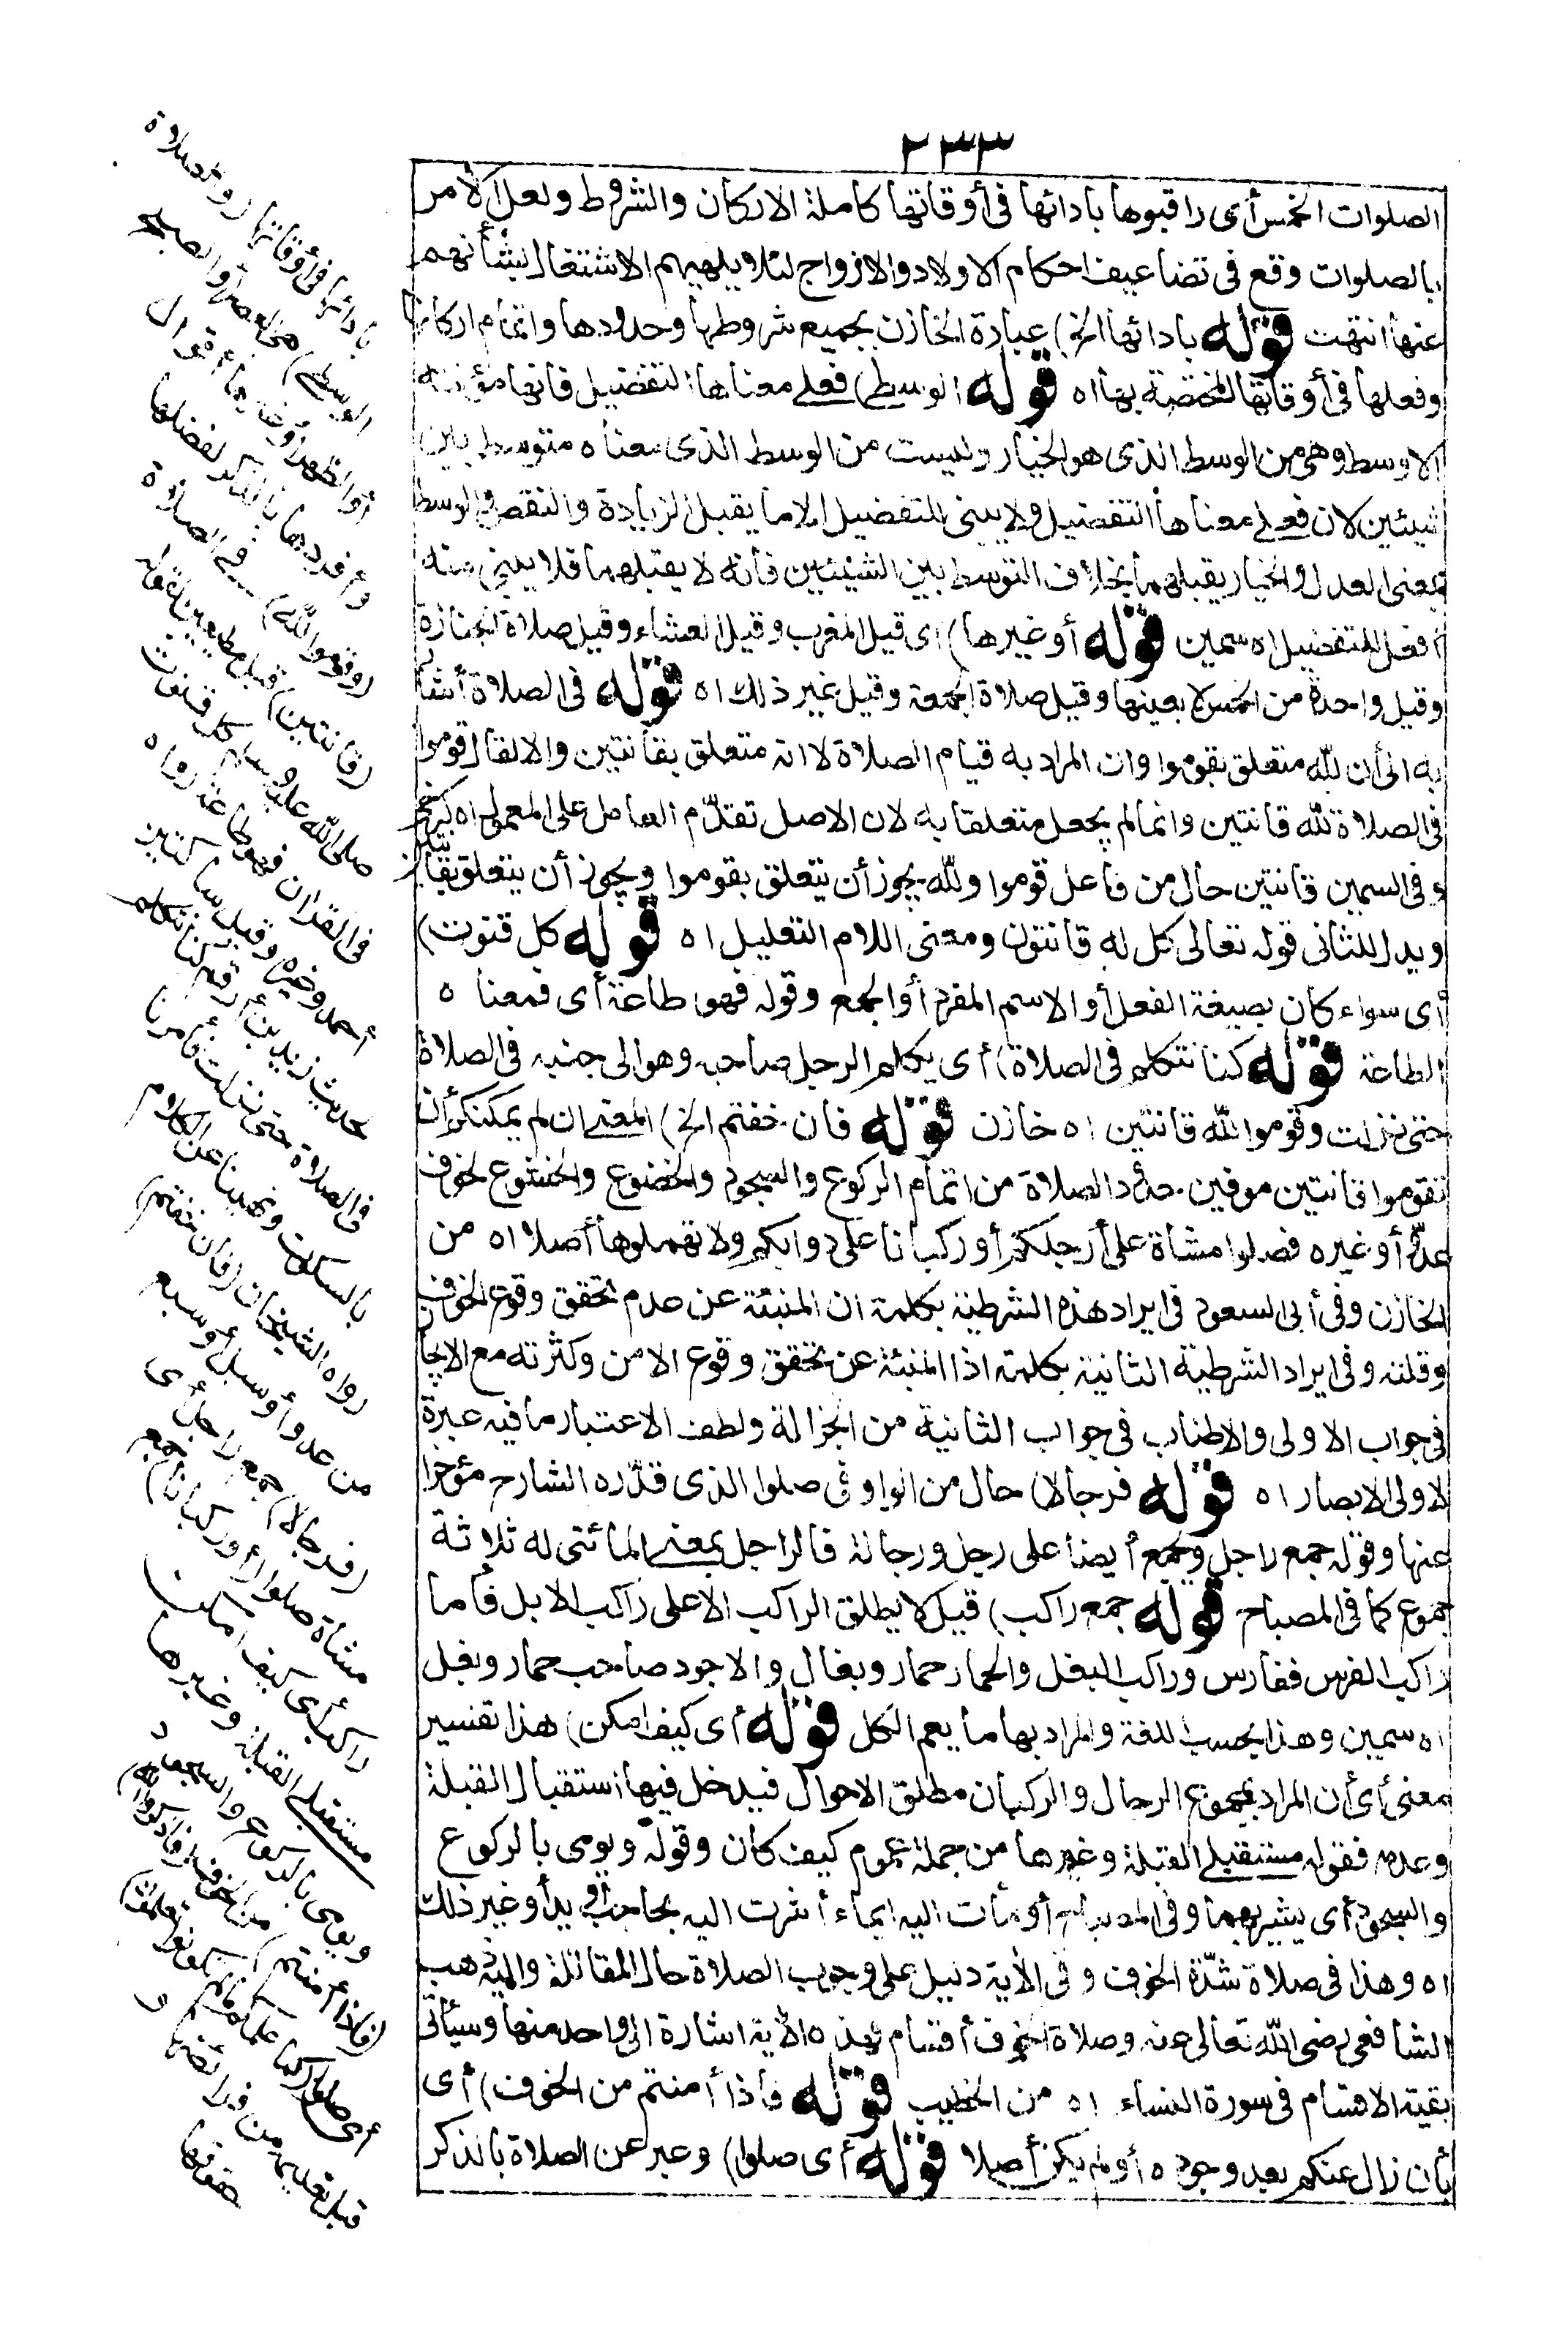 ٢٣٣
الصلوات الخمس أى راقبوها بادائها فى أوقاتها كاملة الاركان والشروط ولعل الأمر
بالصلوات وقع فى تضاعيف احكام الاولاد والازواج لئلا يلهيهم الاشتغال بشأنهم
عنها انتهت قوله بادائها الخ) عبارة الخازن بجميع شروطها وحدودها واتمام اركانها
وفعلها فى أوقاتها المختصة بها اه قوله الوسطى) فعلى معناها التفضيل فانها مؤنثة
الاوسط وهى من الوسط الذى هو الخيار وليست من الوسط الذى معناه متوسط بين
شيئين لان فعلى معناها التفضيل ولا يبنى للتفضيل الا ما يقبل الزيادة والنقص والوسط
بمعنى العدل والخيار يقبلهما بخلاف التوسط بين الشيئين فانه لا يقبلهما فلا يبنى منه
أفعل للتفضيل اه سمين قوله أو غيرها) اى قيل المغرب وقيل العشاء وقيل صلاة الجنازة
وقيل واحدة من الخمس لا بعينها وقيل صلاة الجمعة وقيل غير ذلك اه قوله فى الصلاة أشار
به الى أن لله متعلق بقوموا وان المراد به قيام الصلاة لا انه متعلق بقانتين والا لقال قوموا
فى الصلاة لله قانتين وانما لم يجعل متعلقا به لان الاصل تقدّم العامل على المعمول اه كرخى
وفى السمين قانتين حال من فاعل قوموا ولله يجوز أن يتعلق بقوموا ويجوز أن يتعلق بقانتين
ويدل للثانى قوله تعالى كل له قانتون ومعنى اللام التعليل اه قوله كل قنوت)
أى سواء كان بصيغة الفعل أو الاسم المفرد أو الجمع وقوله فهو طاعة أى فمعناه
الطاعة قوله كنا نتكلم فى الصلاة) أى يكلم الرجل صاحبه وهو الى جنبه فى الصلاة
حتى نزلت وقوموا لله قانتين اه خازن قوله فان خفتم الخ) المعنى ان لم يمكنكم أن
تقوموا قانتين موفين حدود الصلاة من اتمام الركوع والسجود والخضوع والخشوع لخوف
عدوّ أو غيره فصلوا مشاة على أرجلكم أو ركبانا على دوابكم ولا تهملوها أصلا اه من
الخازن وفى أبى السعود فى ايراد هذه الشرطية بكلمة ان المنبئة عن عدم تحقق وقوع الخوف
وقلته وفى ايراد الشرطية الثانية بكلمة اذا المنبئة عن تحقق وقوع الامن وكثرته مع الايجاز
فى جواب الاولى والاطناب فى جواب الثانية من الجزالة ولطف الاعتبار ما فيه عبرة
لاولى الابصار اه قوله فرجالا) حال من الواو فى صلوا الذى قدّره الشارح مؤخرا
عنها وقوله جمع راجل ويجمع أيضا على رجل ورجالة فالراجل بمعنى الماشى له ثلاثة
جموع كما فى المصباح قوله جمع راكب) قيل لا يطلق الراكب الا على راكب الابل فأما
راكب الفرس ففارس وراكب البغل والحمار حمار وبغال والاجود صاحب حمار وبغل
اه سمين وهذا بحسب اللغة والمراد بها ما يعم الكل قوله أى كيف امكن) هذا تفسير
معنى أى أن المراد بمجموع الرجال والركبان مطلق الاحوال فيدخل فيها استقبال القبلة
وعدمه فقوله مستقبلى القبلة وغيرها من جملة عموم كيف كان وقوله ويومى بالركوع
والسجود أى يشير بهما وفى المصباح أومأت اليه ايماء أشرت اليه بحاجب أو يد أو غير ذلك
اه وهذا فى صلاة شدّة الخوف وفى الآية دليل على وجوب الصلاة حال المقاتلة واليه ذهب
الشافعى رضى الله تعالى عنه وصلاة الخوف أقسام فهذه الآية اشارة الى واحد منها وسيأتى
بقية الاقسام فى سورة النساء اه من الخطيب قوله فاذا أمنتم من الخوف) أى
بأن زال عنكم بعد وجوده أو لم يكن أصلا قوله أى صلوا) وعبر عن الصلاة بالذكر
بأدائها فى أوقاتها (والصلاة
الوسطى) هى العصر أو الصبح
أو الظهر أو غيرها أقوال
وأفردها بالذكر لفضلها
(وقوموا لله) فى الصلاة
(قانتين) قيل مطيعين لقوله
صلى الله عليه وسلم كل قنوت
فى القرآن فهو طاعة رواه
أحمد وغيره وقيل ساكتين
لحديث زيد بن أرقم كنا نتكلم
فى الصلاة حتى نزلت فأمرنا
بالسكوت ونهينا عن الكلام
رواه الشيخان (فان خفتم)
من عدو أو سيل أو سبع
(فرجالا) جمع راجل أى
مشاة صلوا (أو ركبانا) جمع
راكب أى كيف امكن
مستقبلى القبلة وغيرها
ويومى بالركوع والسجود
(فاذا أمنتم) من الخوف (فاذكروا الله)
أى صلوا (كما علمكم ما لم تكونوا تعلمون)
قبل تعليمه من فرائضها و
حقوقها